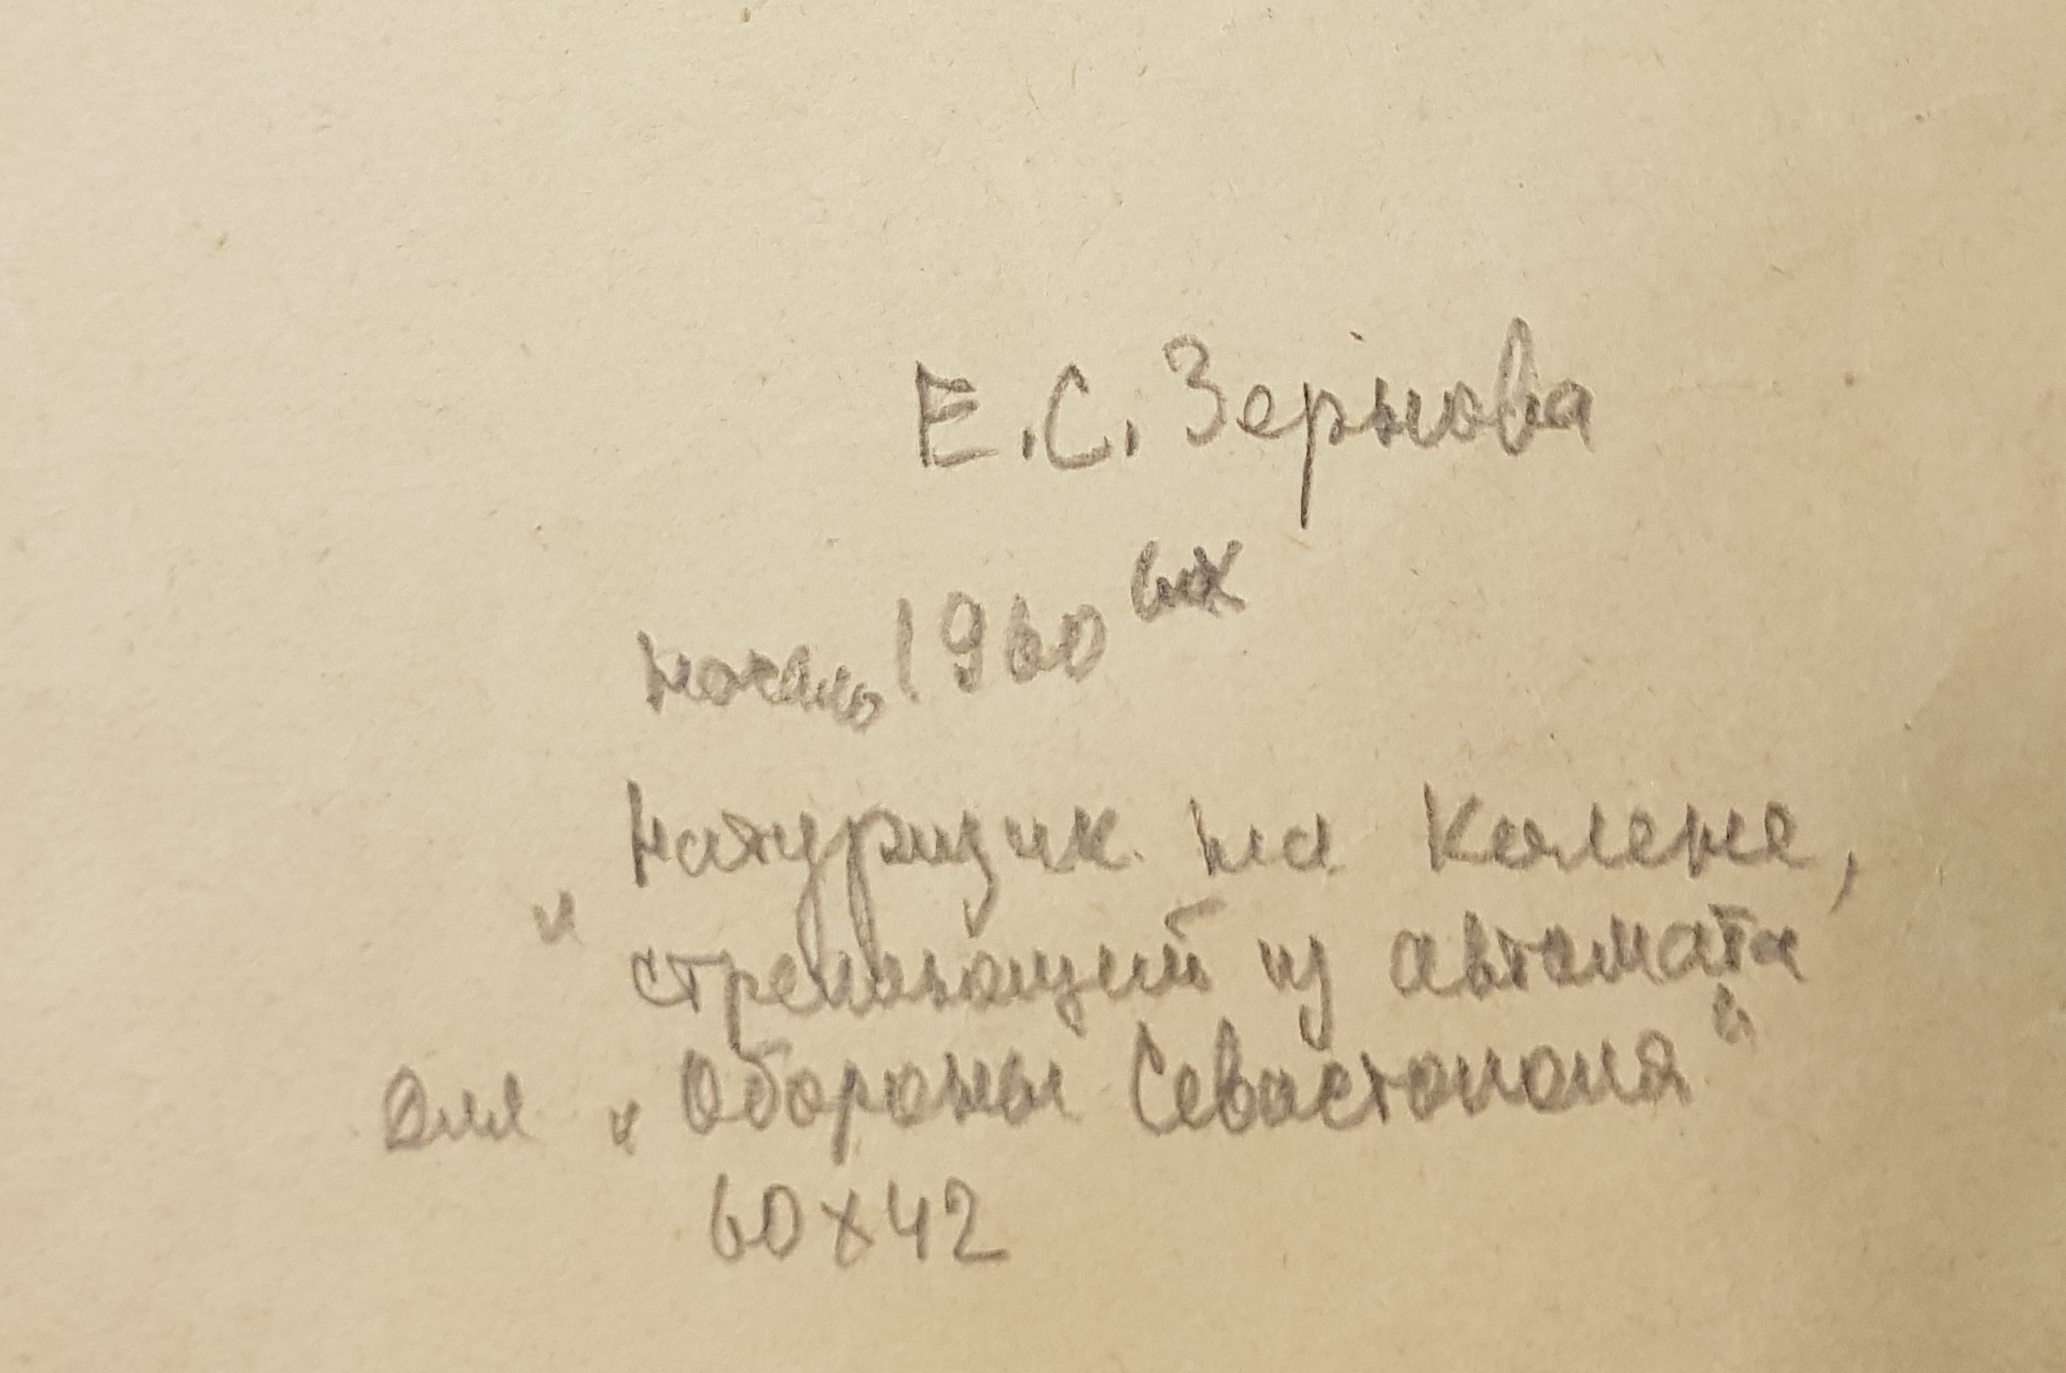 Е.С. Зернова
начало 1960ых
„Натурщик на колене,
стреляющий из автомата
для „Обороны Севастополя"
60х42